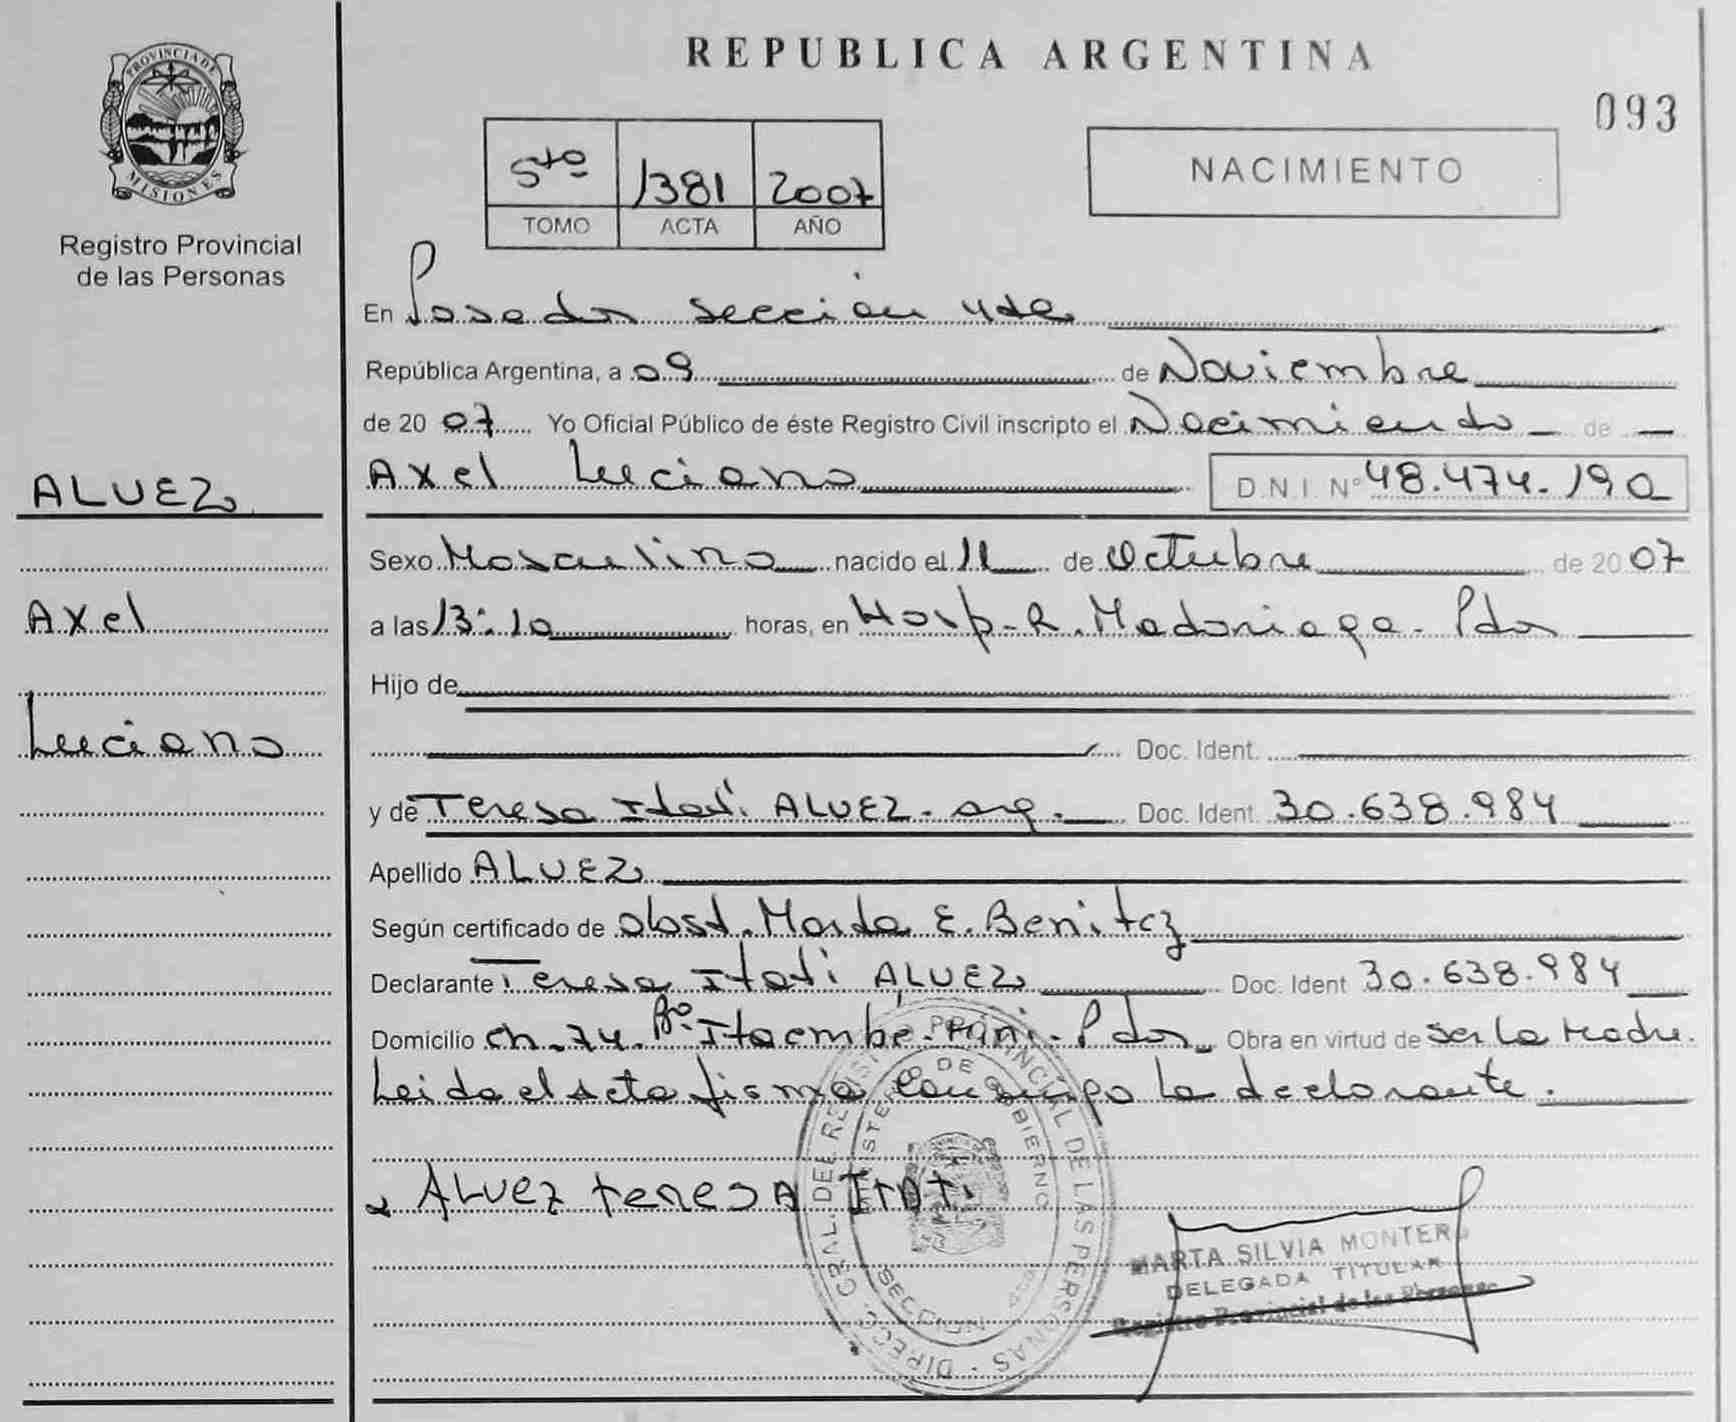 PROVINCIA DE
MISIONES
Registro Provincial
de las Personas
ALVEZ
Axel
Luciano
REPUBLICA ARGENTINA
093
5to 1381 2007
TOMO ACTA AÑO
NACIMIENTO
En Posadas sección 4ta
República Argentina, a 09 de Noviembre
de 20 07 Yo Oficial Público de éste Registro Civil inscripto el Nacimiento de
Axel Luciano D.N.I. Nº 48.474.190
Sexo Masculino nacido el 11 de Octubre de 20 07
a las 13:10 horas, en Hosp. R. Madariaga. Pdas
Hijo de
Doc. Ident.
y de Teresa Itatí ALVEZ. arg. Doc. Ident 30.638.984
Apellido ALVEZ
Según certificado de obst. Marta E. Benitez
Declarante Teresa Itatí ALVEZ Doc. Ident 30.638.984
Domicilio ch. 74. Bº Itaembé Miní. Pdas Obra en virtud de ser la Madre.
Leida el acta firma conmigo la declarante.
ALVEZ teresA ItAti
DIREC. GRAL. DEL REGIST. PROVINCIAL DE LAS PERSONAS
MINISTERIO DE GOBIERNO
SECCION 4ta
MARTA SILVIA MONTERO
DELEGADA TITULAR
Registro Provincial de las Personas